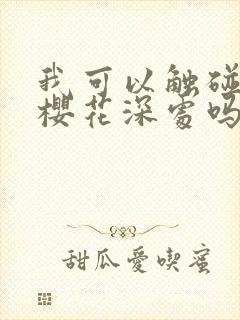 我可以触碰
樱花深处吗
甜瓜愛喫蜜